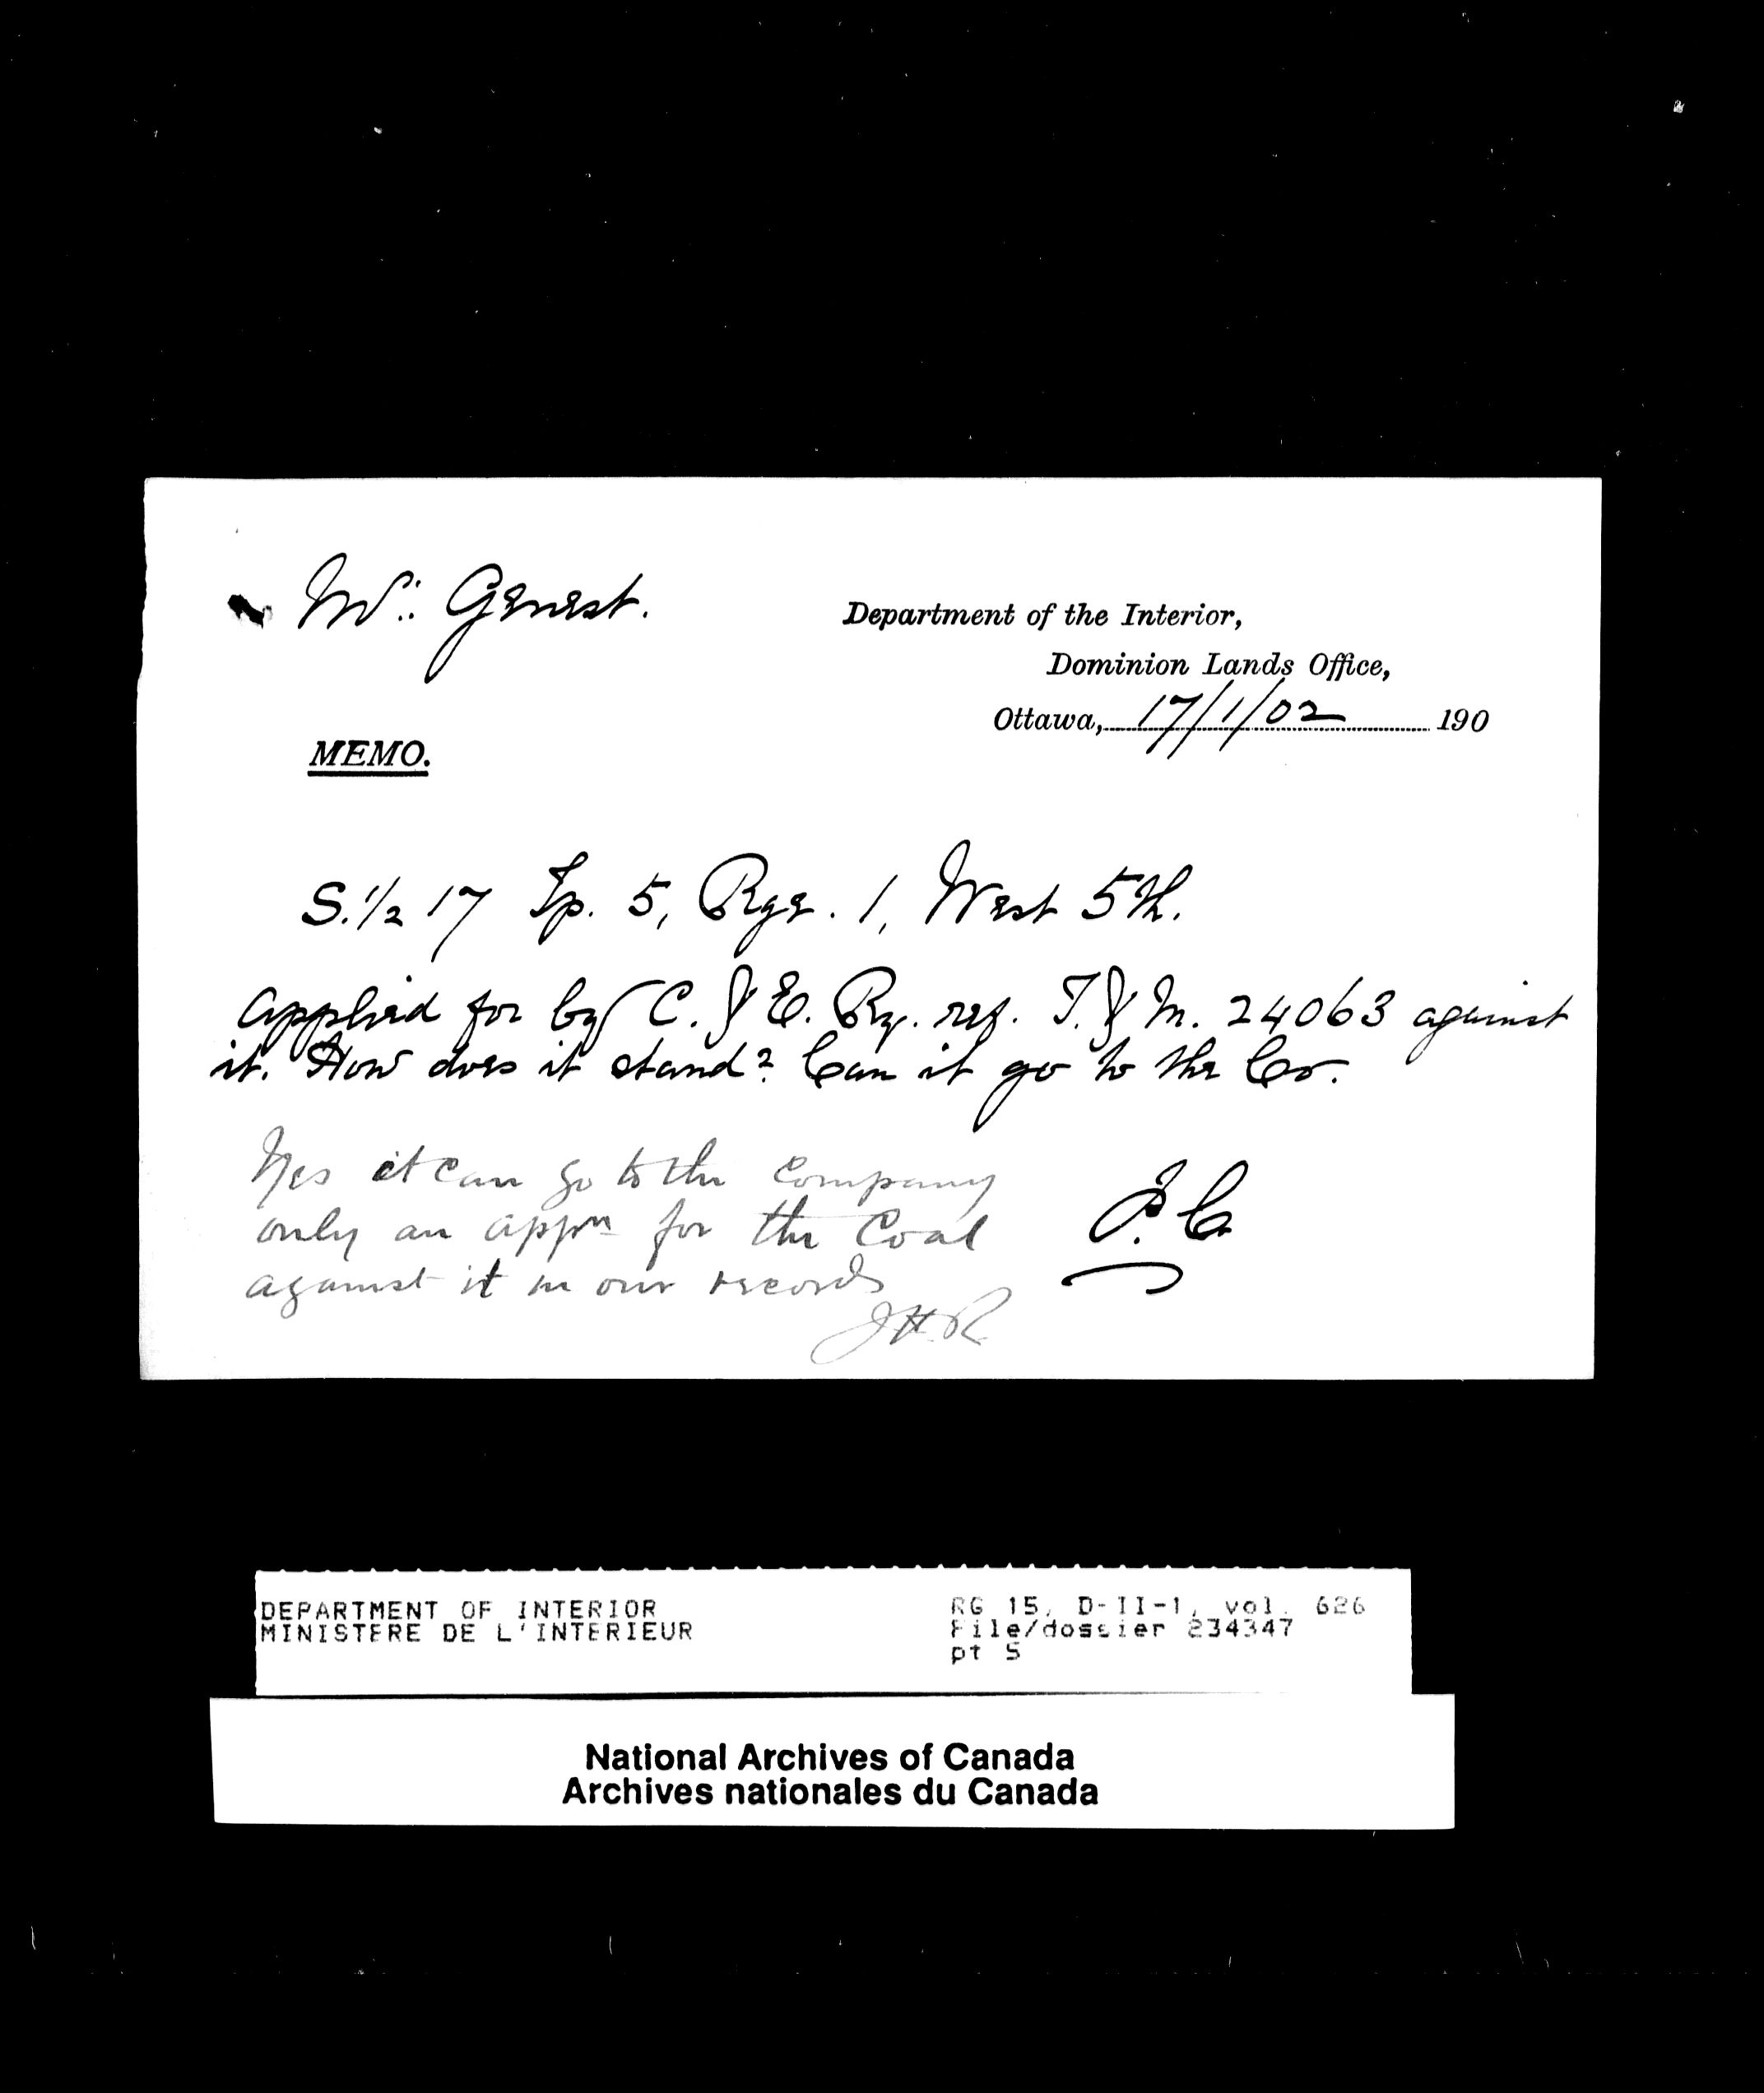 Mr. Genest.
Department of the Interior,
Dominion Lands Office,
Ottawa, 17/1/02 190
MEMO.
S. 1/2 17 Tp. 5, Rge. 1, West 5th.
Applied for by C. & E. Ry. ref. T. & M. 24063 against
it. How does it stand? Can it go to the Co.
Yes it can go to the Company
only an appn for the Coal
against it in our records
J.H.R
P. C
DEPARTMENT OF INTERIOR
MINISTERE DE L'INTERIEUR
RG 15, D-II-1, vol. 626
File/dossier 234347
pt 5
National Archives of Canada
Archives nationales du Canada